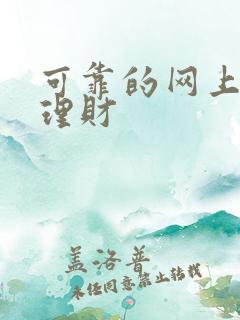 可靠的网上
理财
盖洛普
未经同意禁止转载